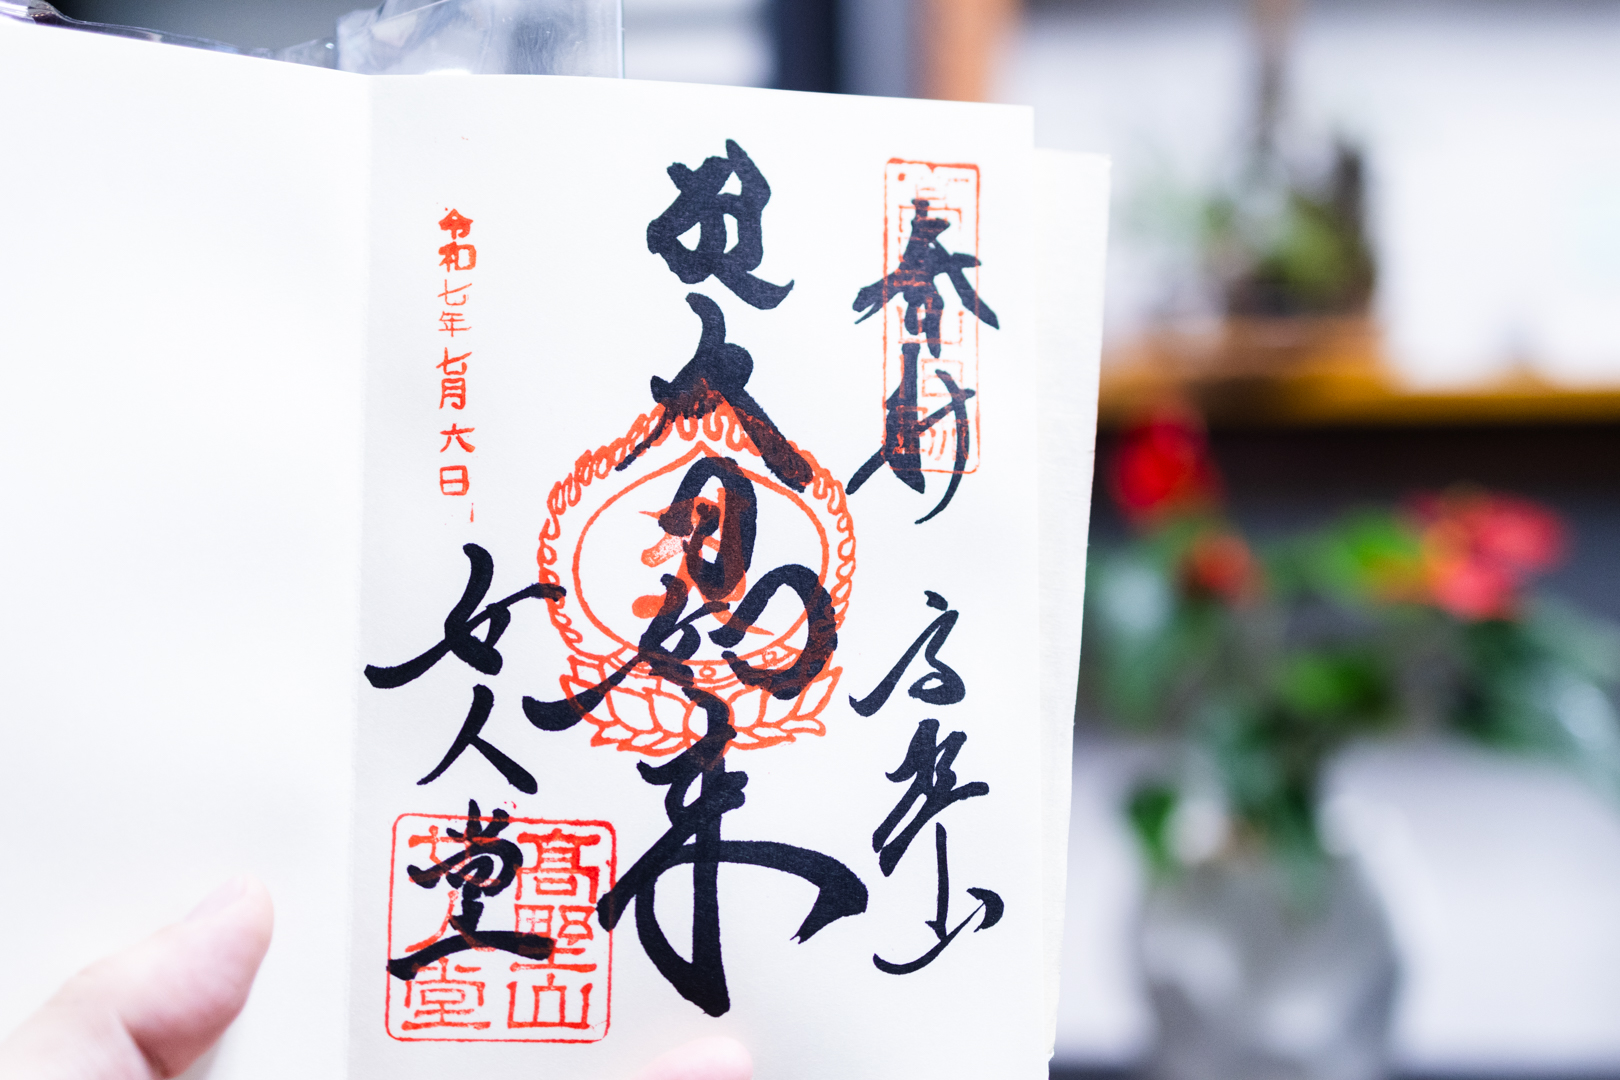 奉拝 高野山
大日如来
令和七年七月六日
女人堂
髙野山
女人堂